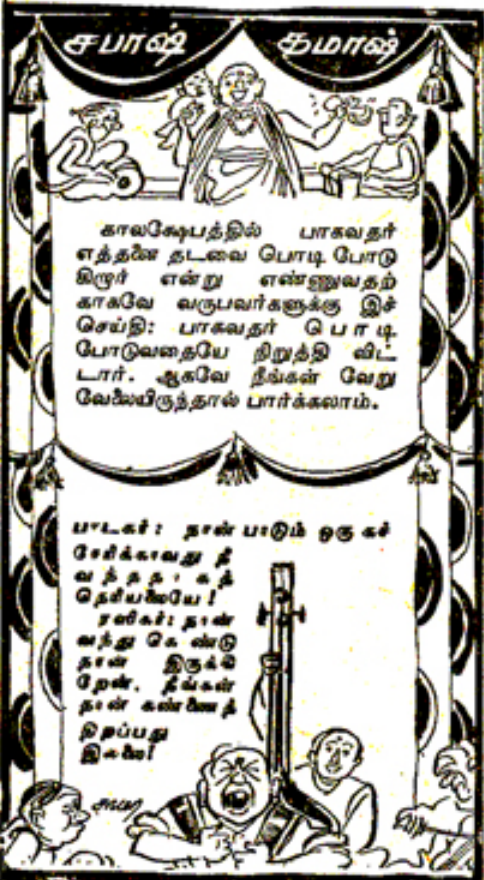 சபாஷ் தமாஷ்
காலக்ஷேபத்தில் பாகவதர்
எத்தனை தடவை பொடி போடு
கிறார் என்று எண்ணுவதற்
காகவே வருபவர்களுக்கு இச்
செய்தி: பாகவதர் பொடி
போடுவதையே நிறுத்தி விட்
டார். ஆகவே நீங்கள் வேறு
வேலையிருந்தால் பார்க்கலாம்.
பாடகர்: நான் பாடும் ஒரு கச்
சேரிக்காவது நீ
வந்ததாகத்
தெரியலையே!
ரஸிகர்: நான்
வந்து கொண்டு
தான் இருக்கி
றேன். நீங்கள்
தான் கண்ணைத்
திறப்பது
இல்லை!
சாமா